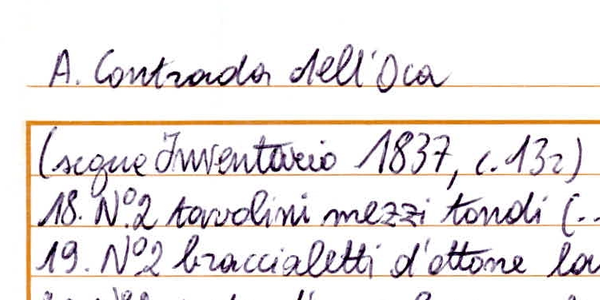 A. Contrada dell'Oca
(segue Inventario 1837, c. 13r)
18. N°2 tavolini mezzi tondi (..
19. N°2 braccialetti d'ottone